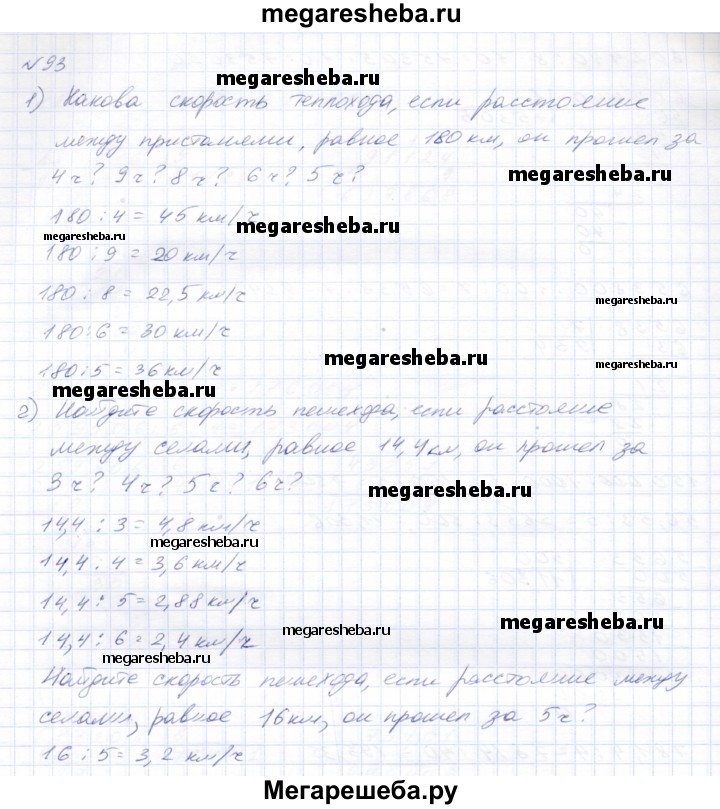 megaresheba.ru
№93
megaresheba.ru
1) Какова скорость теплохода, если расстояние
между пристанями, равное 180 км, он прошел за
4ч? 9ч? 8ч? 6ч? 5ч?
megaresheba.ru
180 : 4 = 45 км/ч
megaresheba.ru
megaresheba.ru
180 : 9 = 20 км/ч
180 : 8 = 22,5 км/ч
megaresheba.ru
180:6 = 30 км/ч
megaresheba.ru
180:5 = 36 км/ч
megaresheba.ru
megaresheba.ru
2) Найдите скорость пешехода, если расстояние
между селами, равное 14,4 км, он прошел за
3ч? 4ч? 5ч? 6ч?
megaresheba.ru
14,4 : 3 = 4,8 км/ч
megaresheba.ru
14,4 : 4 = 3,6 км/ч
14,4 : 5 = 2,88 км/ч
megaresheba.ru
megaresheba.ru
14,4 : 6 = 2,4 км/ч
megaresheba.ru
Найдите скорость пешехода, если расстояние между
селами, равное 16 км, он прошел за 5ч?
16 : 5 = 3,2 км/ч
Мегарешеба.ру